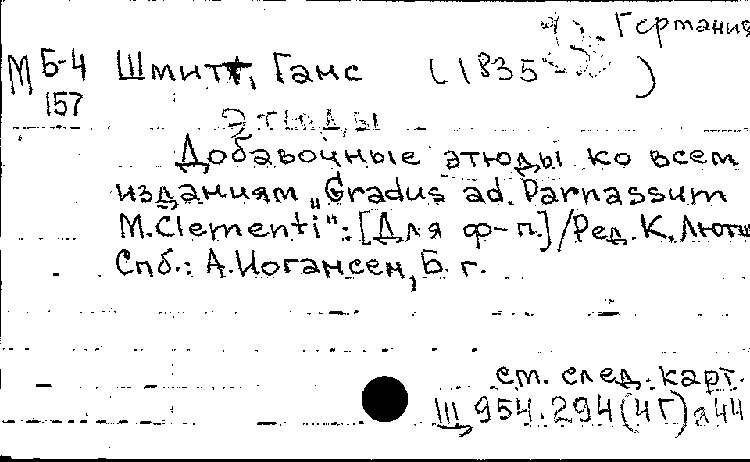 Германия
М Б-4 Шмитт, Ганс (1835 )
157
Этюды
Добавочные этюды ко всем
изданиям „Gradus ad. Parnassum
M. Clementi": [Для ф-п.] /Ред. К. Лютш
Спб.: А. Иогансен, Б. г.
см. след. карт.
III 954.294(4Г) а44